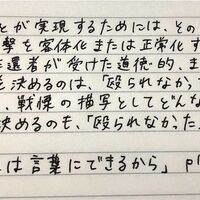 とが実現するためには、その
撃を客体化または正常化す
選者が受けた道徳的、ま
決めるのは、「殴られなかった
、戦慄の描写としてどんな
決めるのも、「殴られなかった
は言葉にできるから」 p1